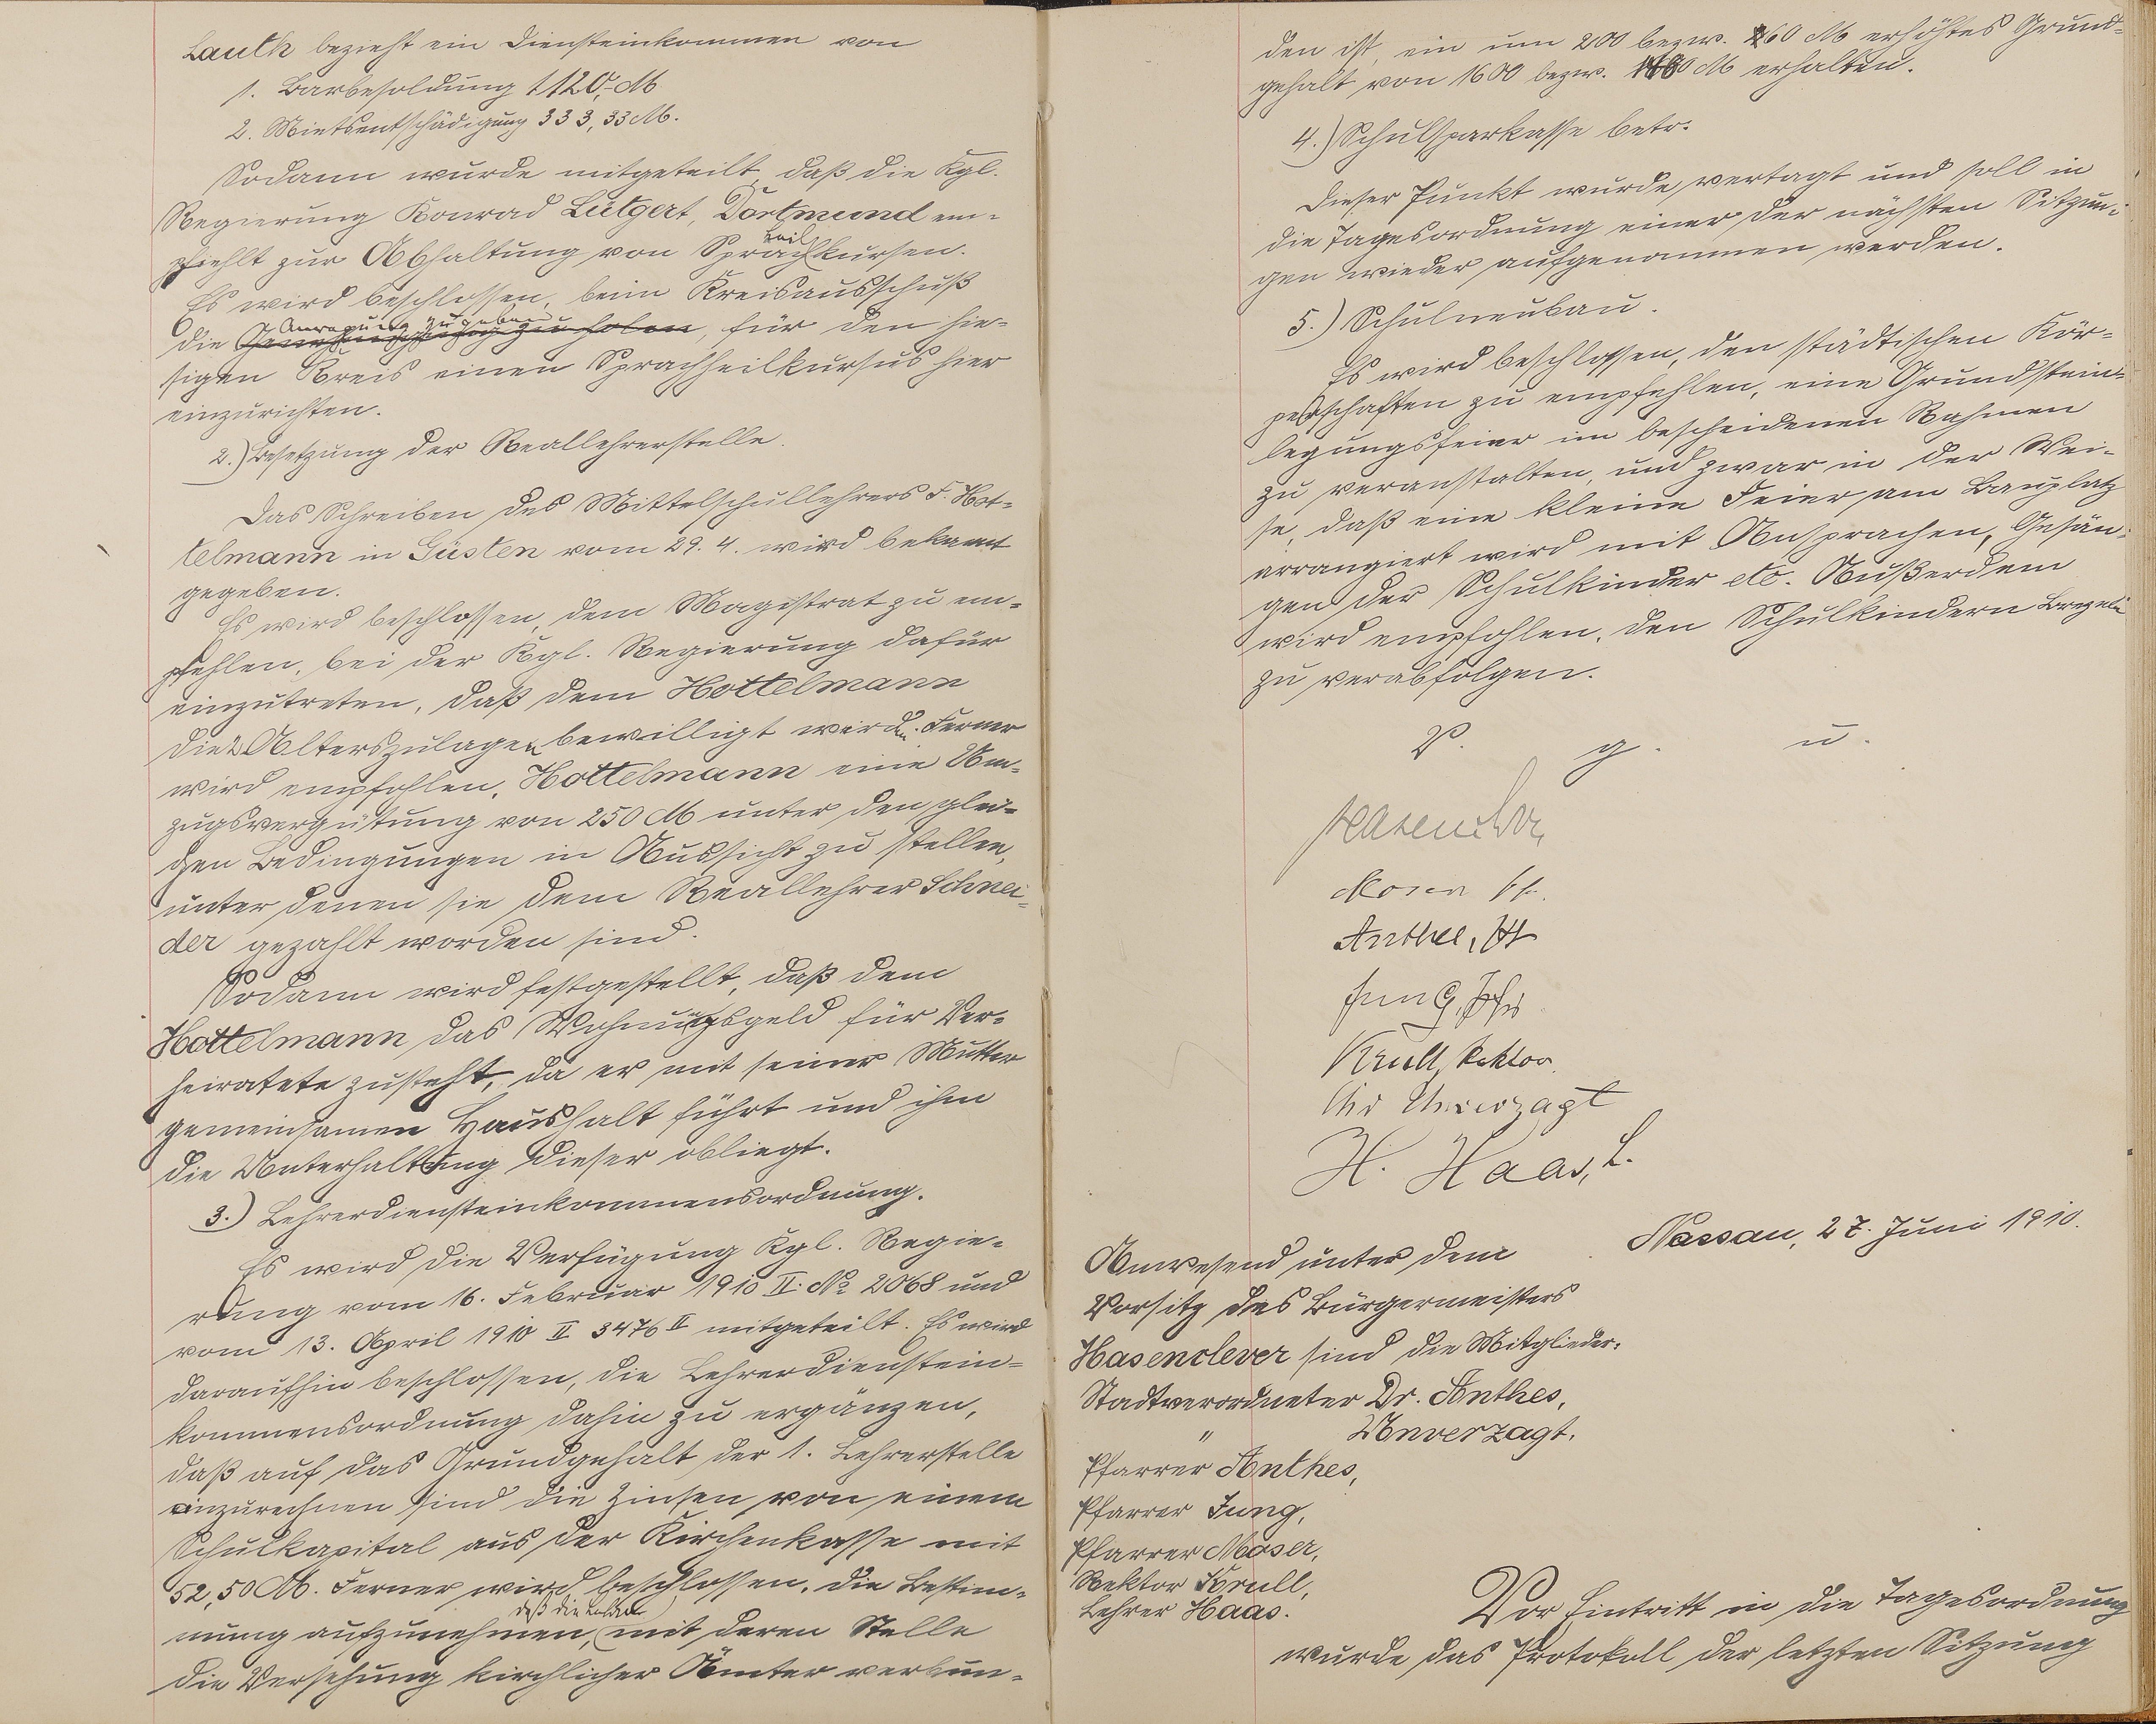 Lauth bezieht ein Diensteinkommen von
1. Barbesoldung 1120,- M
2. Mietsentschädigung 333,33 M.
Sodann wurde mitgeteilt, daß die Kgl.
Regierung Konrad Lütgert, Dortmund em-
pfiehlt zur Abhaltung von Sprachheilkursen.
Es wird beschlossen, beim Kreisausschuß
die Anregung zu geben, für den hie-
sigen Kreis einen Sprachheilkursus hier
einzurichten.
2.) Besetzung der Reallehrerstelle.
Das Schreiben des Mittelschullehrers F. Hot-
telmann in Güsten vom 29. 4. wird bekannt
gegeben.
Es wird beschlossen, dem Magistrat zu em-
pfehlen, bei der Kgl. Regierung dafür
einzutreten, daß dem Hottelmann
die 2 Alterszulagen bewilligt werden. Ferner
wird empfohlen, Hottelmann eine Um-
zugsvergütung von 250 M unter den glei-
chen Bedingungen in Aussicht zu stellen,
unter denen sie dem Reallehrer Schnei-
der gezahlt worden sind.
Sodann wird festgestellt, daß dem
Hottelmann das Wohnungsgeld für Ver-
heiratete zusteht, da er mit seiner Mutter
gemeinsamen Haushalt führt und ihm
die Unterhaltung dieser obliegt.
3.) Lehrerdiensteinkommensordnung.
Es wird die Verfügung Kgl. Regie-
rung vom 16. Februar 1910 II. No 2068 und
vom 13. April 1910 II 3476 II mitgeteilt. Es wird
daraufhin beschlossen, die Lehrerdienstein-
kommensordnung dahin zu ergänzen,
daß auf das Grundgehalt der 1. Lehrerstelle
einzurechnen sind die Zinsen von einem
Schulkapital aus der Kirchenkasse mit
52,50 M. Ferner wird beschlossen, die Bestim-
mung aufzunehmen, daß die Lehrer mit deren Stelle
die Versehung kirchlicher Ämter verbun-
den ist, ein um 200 bezw. 260 M erhöhtes Grund-
gehalt von 1600 bezw. M erhalten.
4.) Schulsparkasse betr.
Dieser Punkt wurde vertagt und soll in
die Tagesordnung einer der nächsten Sitzun-
gen wieder aufgenommen werden.
5.) Schulneubau.
Es wird beschlossen, den städtischen Kör-
perschaften zu empfehlen, eine Grundstein-
legungsfeier im bescheidenen Rahmen
zu veranstalten, und zwar in der Wei-
se, daß eine kleine Feier am Bauplatz
arrangiert wird mit Ansprachen, Gesän-
gen der Schulkinder etc. Außerdem
wird empfohlen, den Schulkindern Brezeln
zu verabfolgen.
V. g. u.
Hasenclever
Moser Pf.
Anthes, Pf
Jung, Pfr
Krull, Rektor.
Chr Unverzagt
H. Haas, L.
Nassau, 27. Juni 1910.
Anwesend unter dem
Vorsitz des Bürgermeisters
Hasenclever sind die Mitglieder:
Stadtverordneter Dr. Anthes,
" Unverzagt,
Pfarrer Anthes,
Pfarrer Jung,
Pfarrer Moser,
Rektor Krull,
Lehrer Haas.
Vor Eintritt in die Tagesordnung
wurde das Protokoll der letzten Sitzung